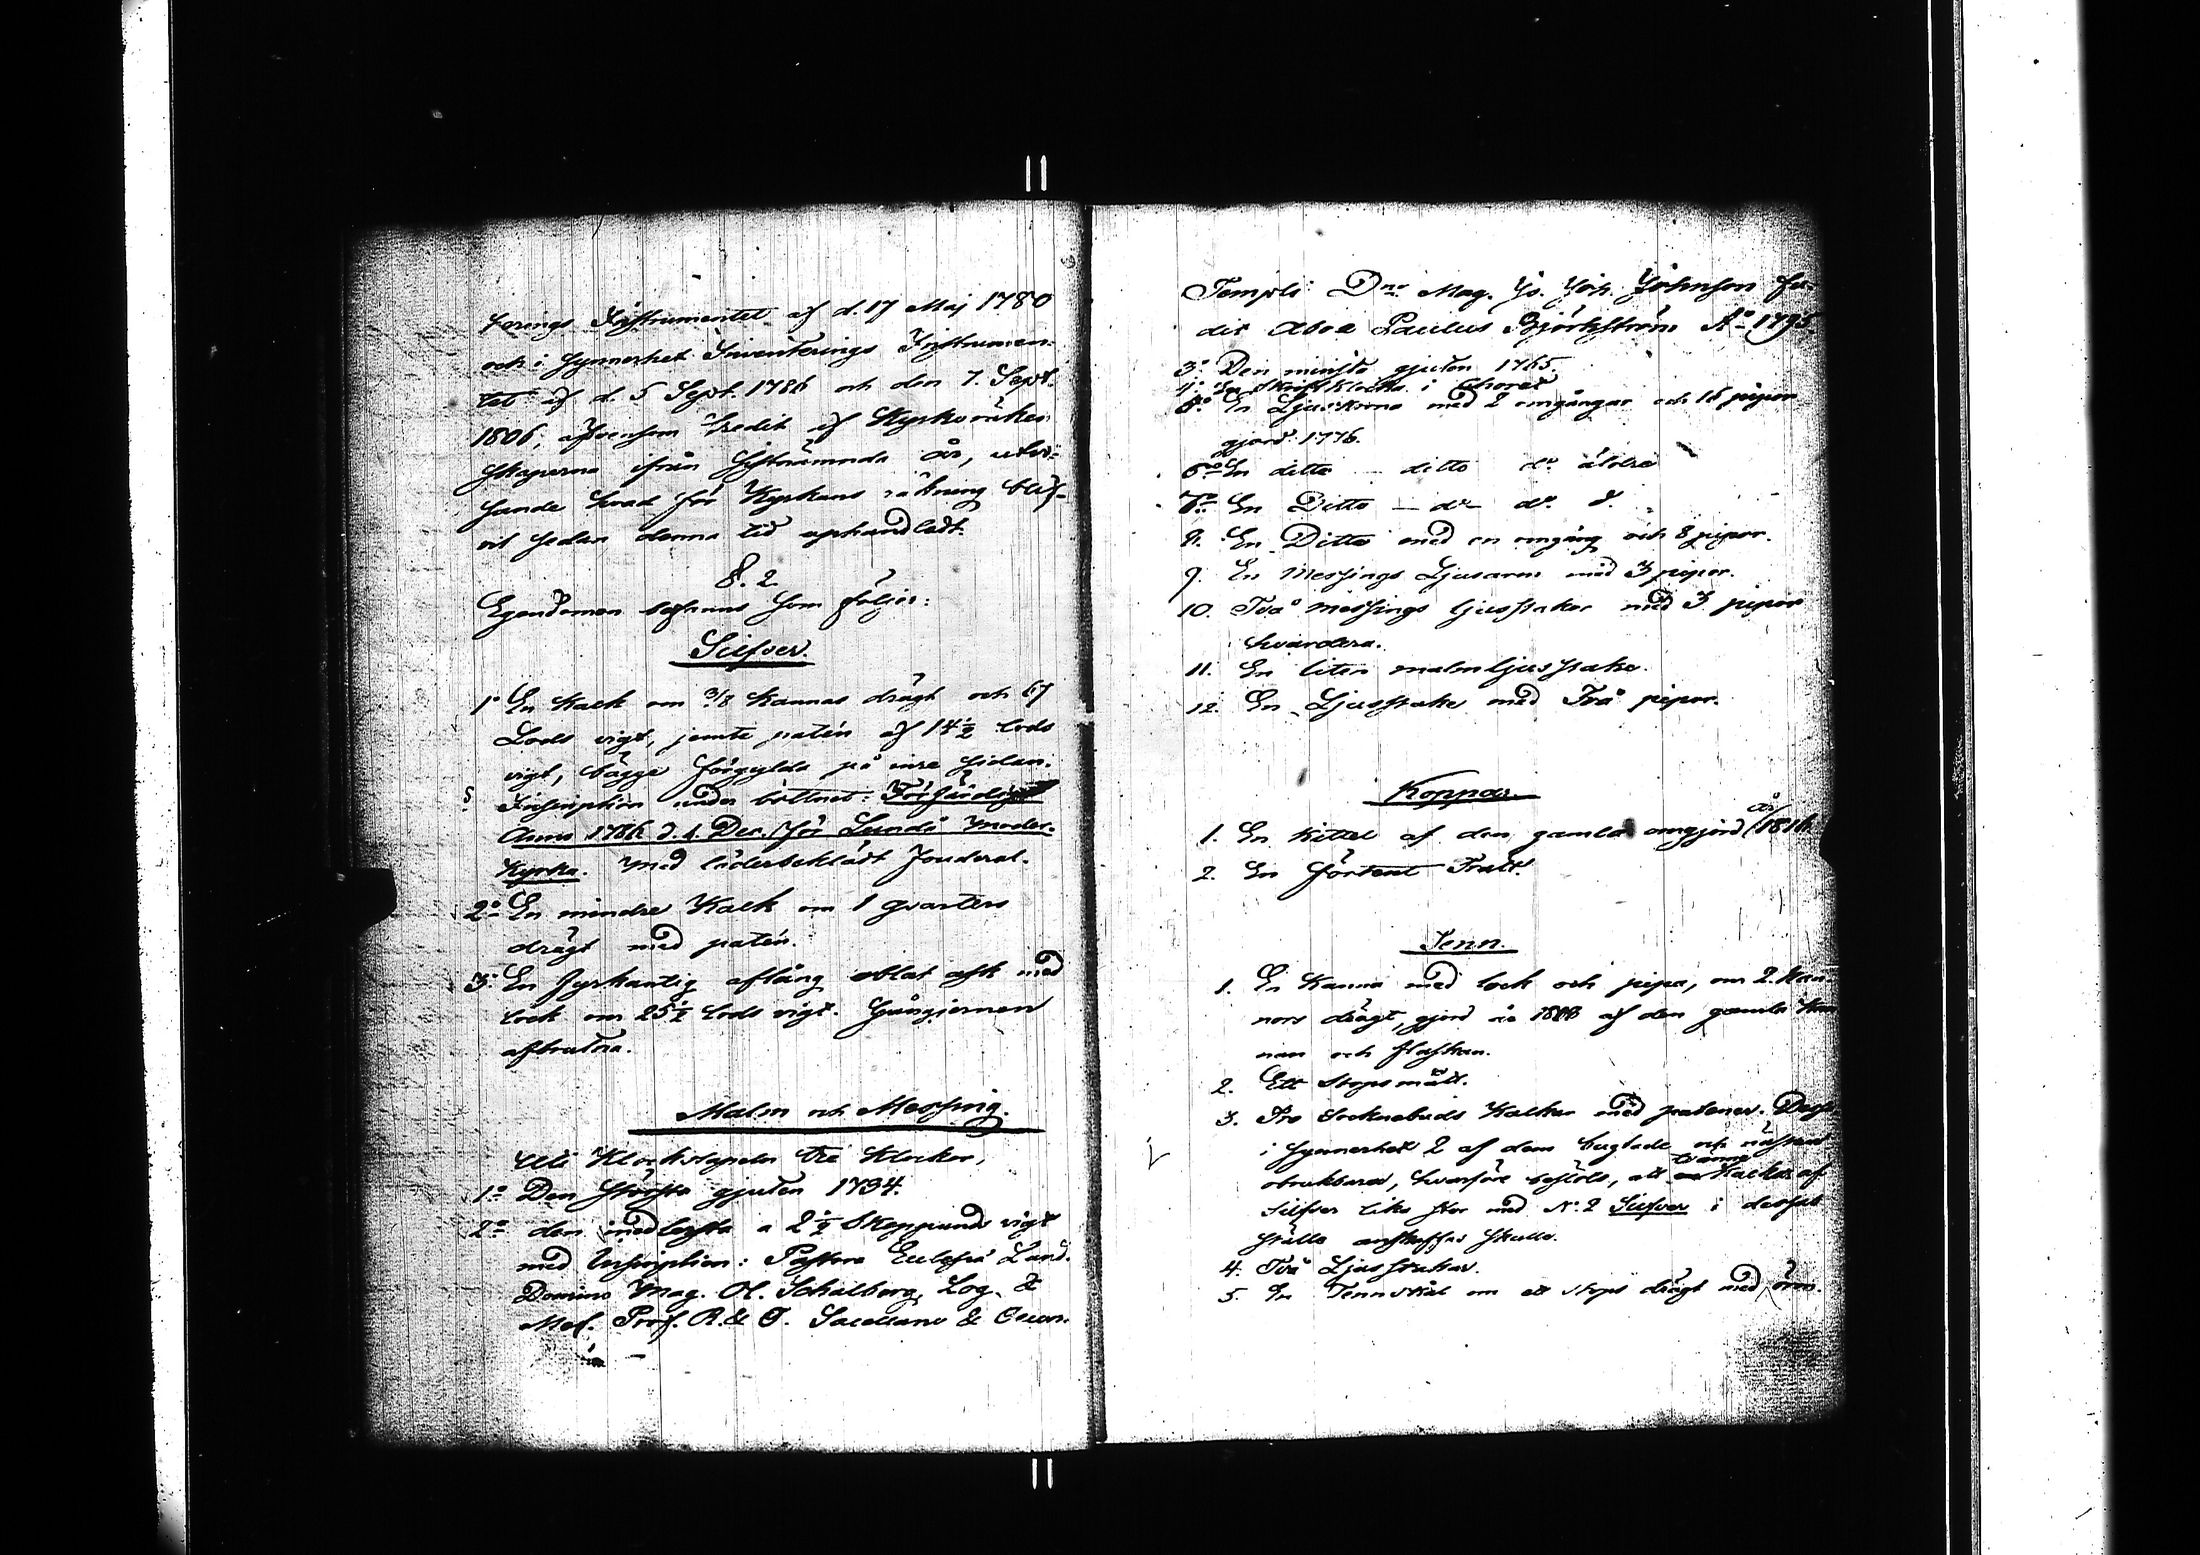 terings Instrumentet af d. 17 Maj 1780
och i synnerhet Inventerings Instrumen-
tet af d. 5 Sept. 1786 och den 7. Sept.
1806, äfvensom Credit af Kyrkoräken
skaperna ifrån sistnämnda år, utvi-
sande hvad för Kyrkans räkning blif-
vit sedan denna tid uphandladt.
§. 2.
Egendomen befanns som följer:
Silfver.
1º En Kalk om 3/8 Kannas drägt och 67
Lods vigt, jemte patén af 14 1/2 lods
vigt, bägge förgylda på inre sidan.
Inscription under bottnet: Förfärdigat
Anno 1786 d. 1. Dec. för Lundo Moder-
Kyrka. Med läderbeklädt fouderal.
2º En mindre Kalk om 1 qvarters
drägt med patén.
3º En fyrkantig aflång oblat ask med
lock om 25 1/2 lods vigt. Gångjernen
afbrutna.
Malm och Messing.
Uti Klockstapeln tre Klockor,
1º Den största gjuten 1734.
2º den medlersta a 2 1/2 Skeppunds vigt
med Inscription: Pastore Eclesiæ Lund.
Domino Mag. Ol. Schalberg, Log. &
Met. Prof. R. & O. Sacellano &
Templi Dno Mag. Jo. Joh. Johnson fu-
dit Aboæ Paulus Björkström Aº 1795
3º Den minsta gjuten 1765.
4º En Skriftklocka i Choret
5º En Ljuskrona med 2 omgångar och 16 pipor
gjord 1776.
6º En ditto - ditto dº äldre
7º En Ditto - dº dº dº
8. En Ditto med en omgång och 8 pipor.
9. En Messings Ljusarm med 3 pipor.
10. Två Messings ljusstakar med 3 pipor
hvardera.
11. En liten malm ljusstake.
12. En Ljusstake med Två pipor.
Koppar.
1. En Kittel af den gamla omgjord år 1816
2. En förtent Tratt.
Tenn.
1. En Kanna med lock och pipa, om 2. Kan-
nors drägt, gjord år 1808 af den gamla Kan
nan och flaskan.
2. Ett Stopsmått.
3. Tre Sockenbuds Kalkar med patener. Dessa
i synnerhet 2 af dem buglade och nästan
obrukbara, hvarföre beslöts, att tvänne Kalkar af
Silfver lika stor med N. 2 Silfver i dessas
ställe anskaffas skulle.
4. Två Ljusstakar.
5. En Tennskål om ett stops drägt med öron.